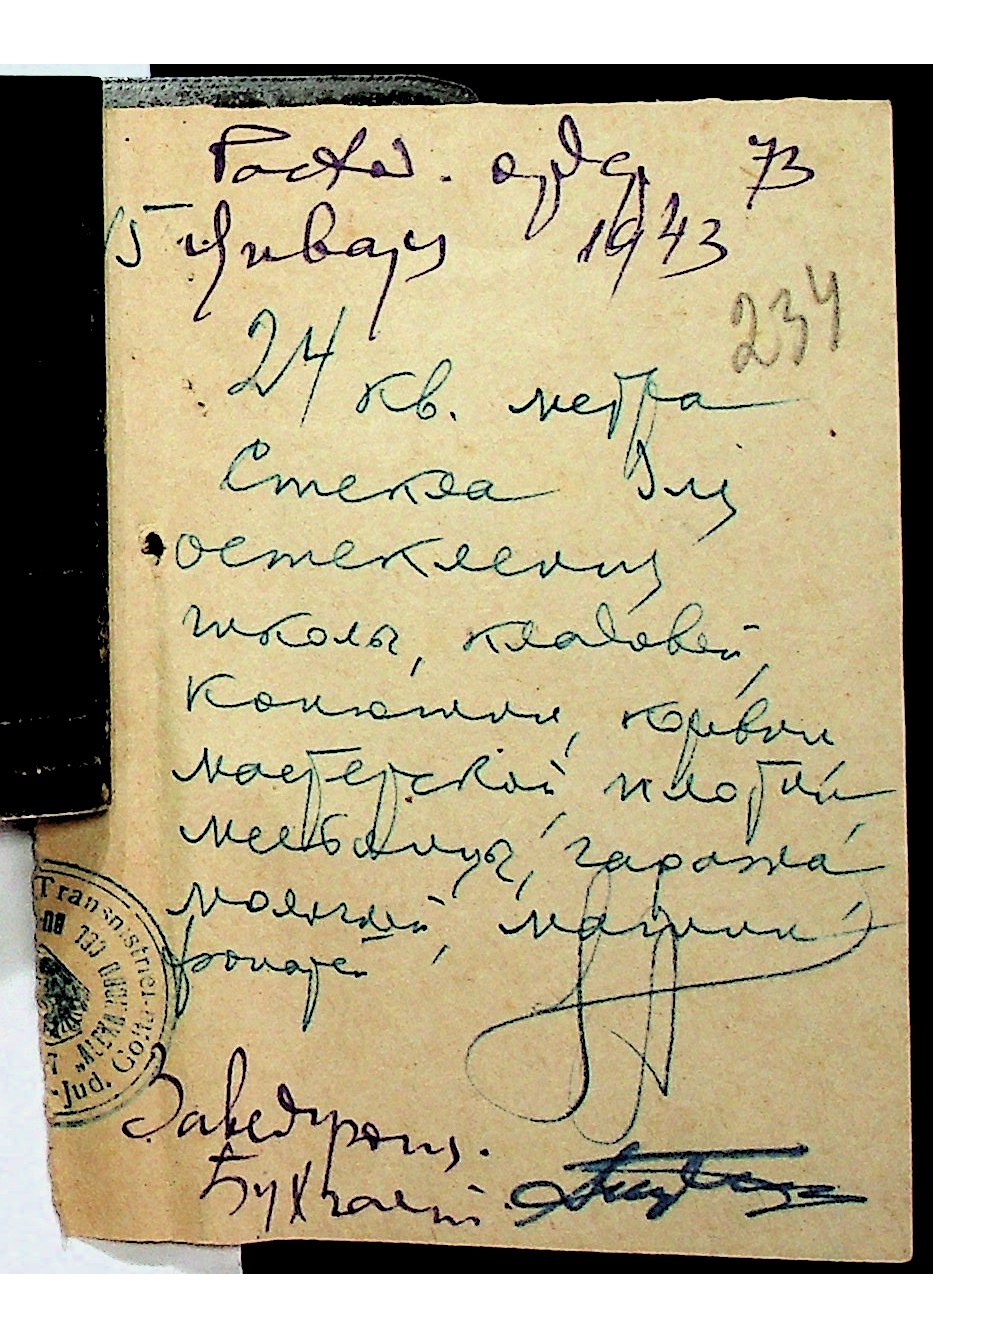 Расход. ордер 73
15 января 1943
234
24 кв. метра
Стекла для
остекления
школы, кладовой,
конюшни, 
мастерской, плотни
мельницы, гаража
машин
фонарей
Transnistriei
Jud. Golta
Заведующ.
Бухгалт.